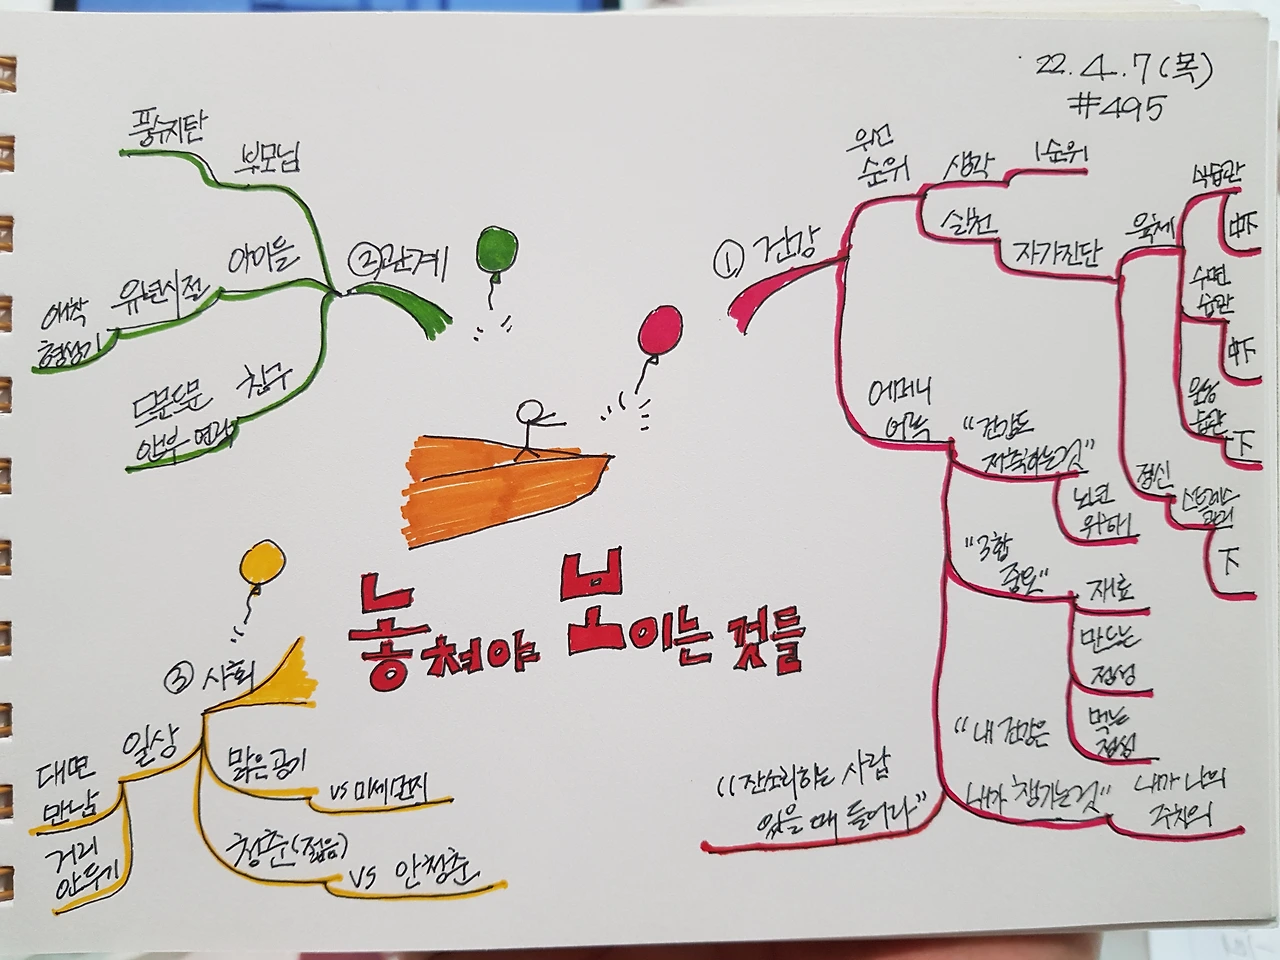 22.4.7(목)
#495
놓쳐야 보이는 것들
① 건강
우선
순위
생각
1순위
실천
자가진단
육체
식습관
中下
수면
습관
中下
운동
습관
下
정신
스트레스
관리
下
어머니
어록
"건강도
저축하는것"
노년
위해
"3합
중요"
재료
만드는
정성
먹는
정성
"내 건강은
내가 챙기는것"
내가 나의
주치의
"잔소리하는 사람
있을 때 들어라"
②관계
부모님
풍수지탄
아이들
유년시절
애착
형성기
친구
드문드문
안부 연락
③ 사회
일상
대면
만남
거리
안두기
맑은공기
vs 미세먼지
청춘(젊음)
vs 안청춘